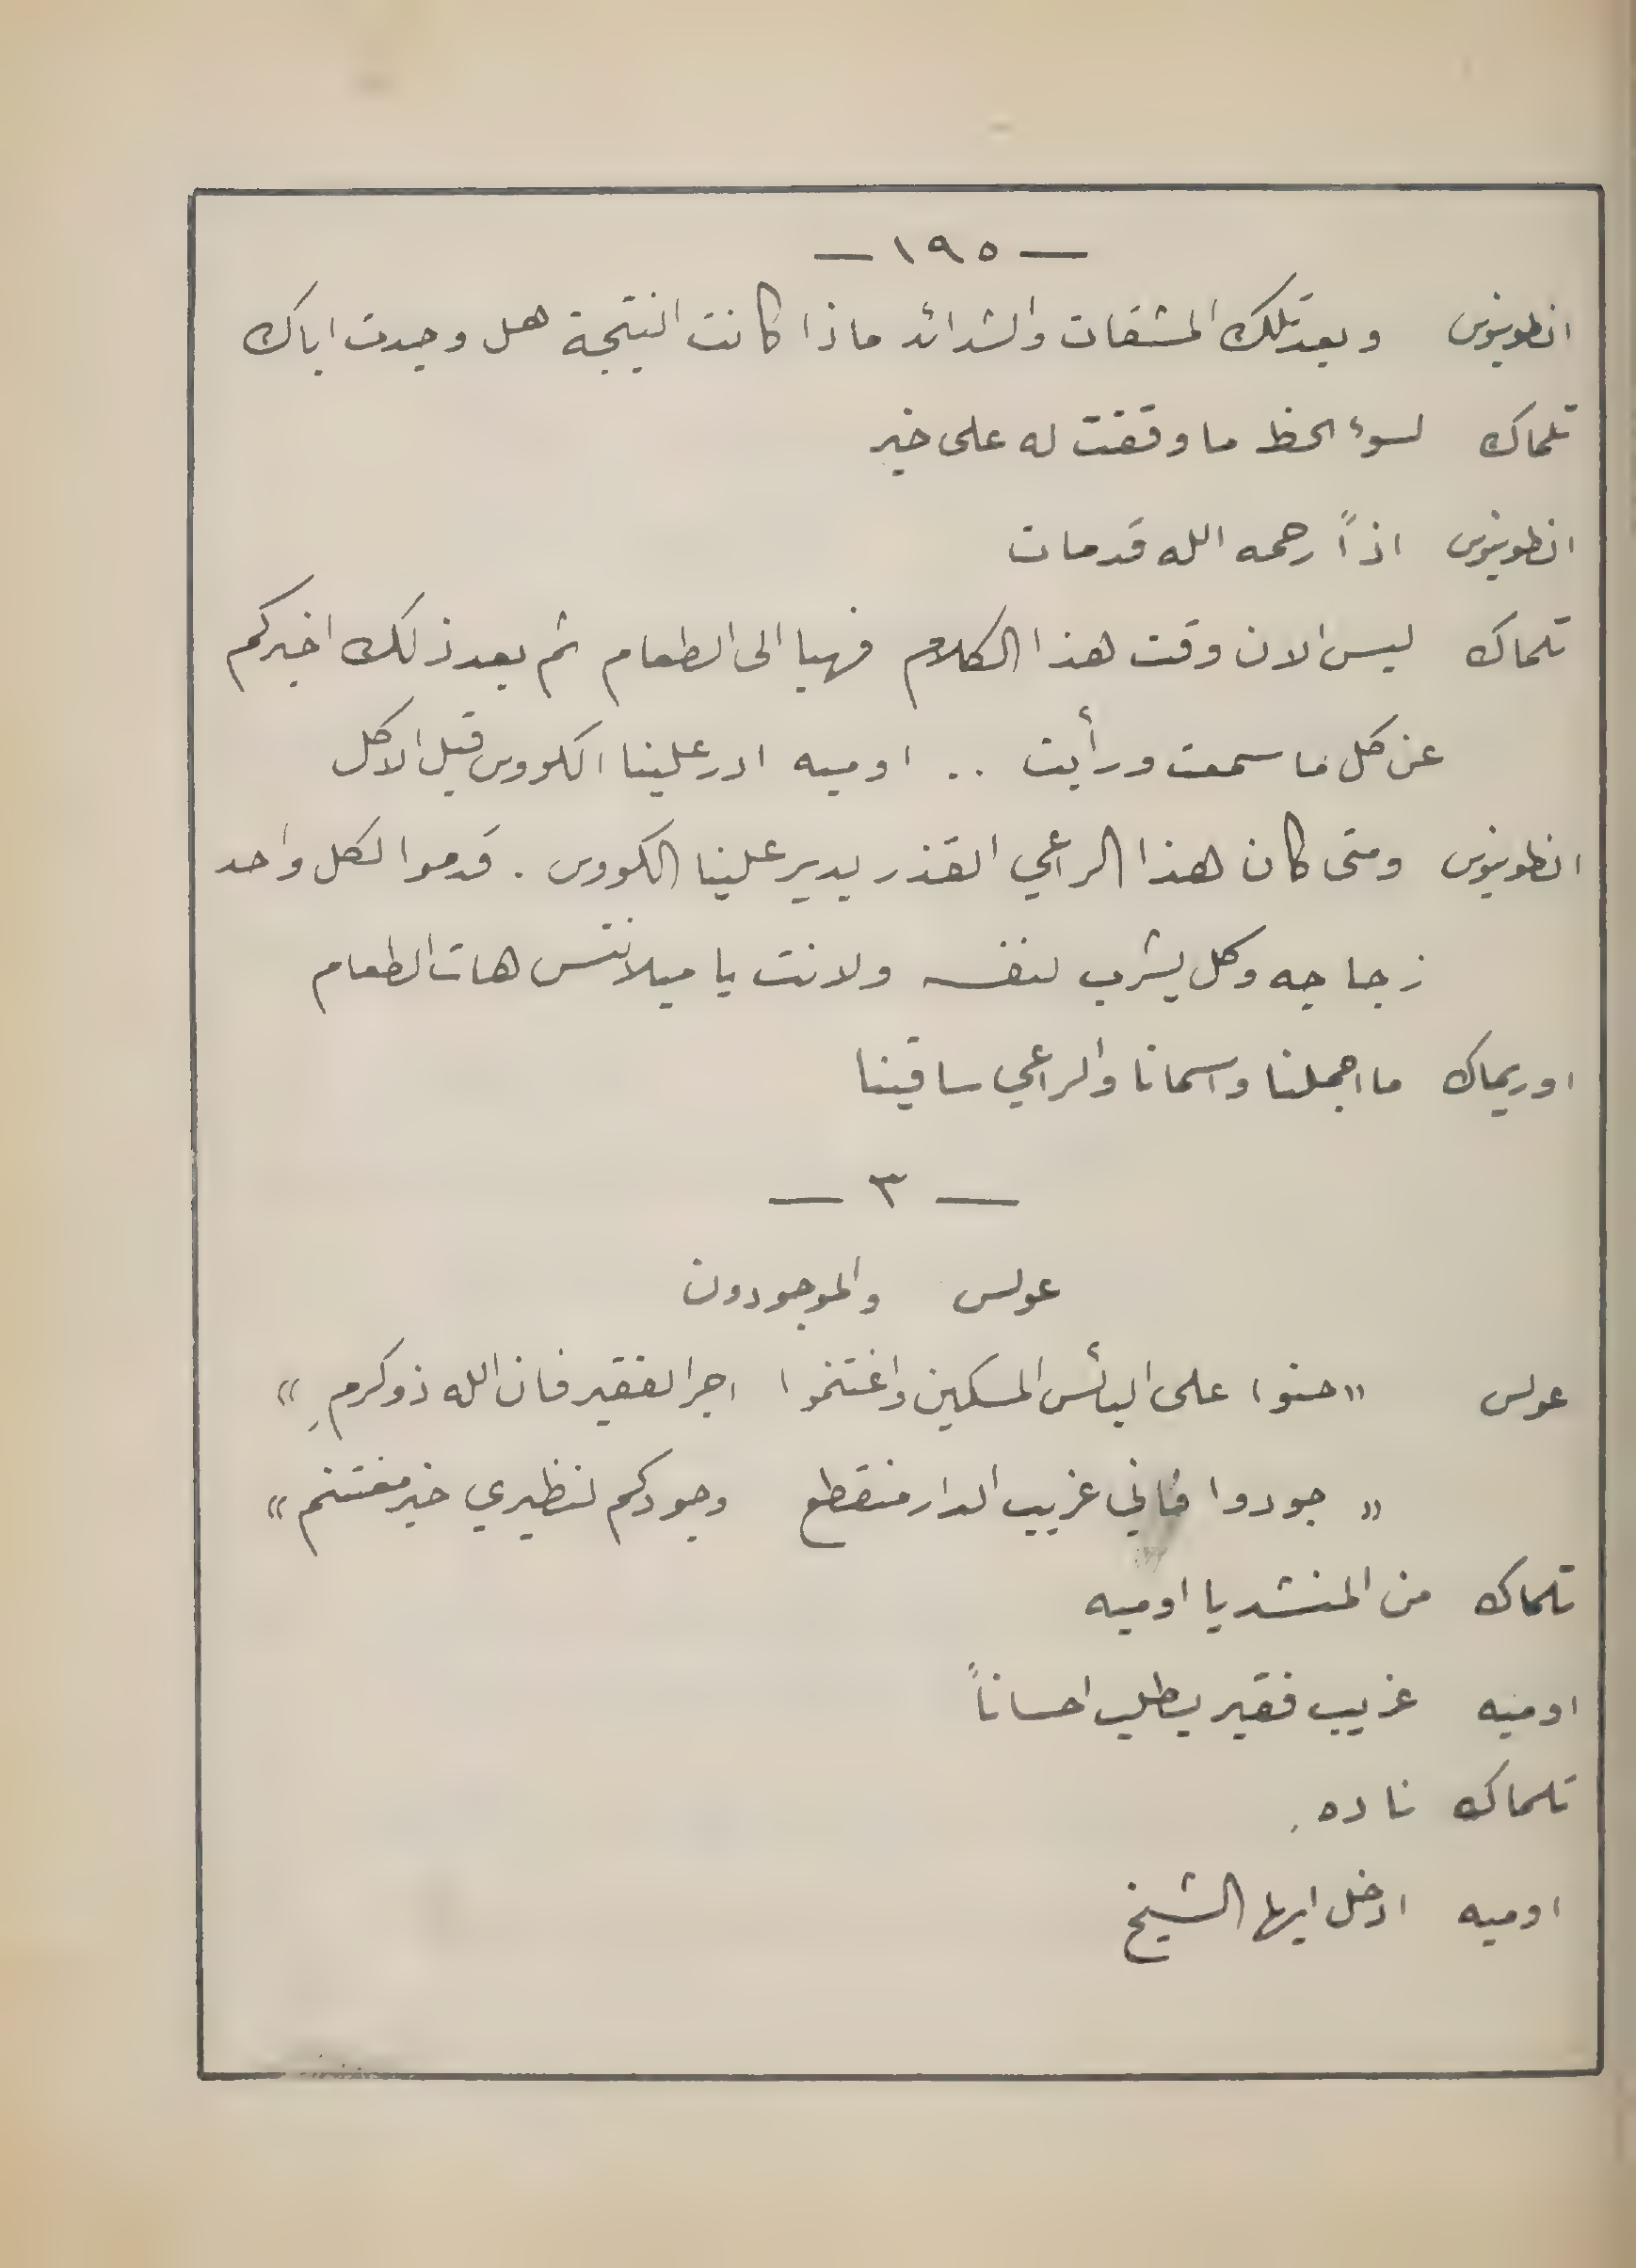 — ١٩٥ —
انطونيوس وبعد تلك المشقات والشدائد ماذا كانت النتيجة هل وجدت اباك
تلماك لسوء الحظ ما وقفت له على خبر
انطونيوس اذاً رحمه الله قد مات
تلماك ليس الان وقت هذا الكلام فهيا الى الطعام ثم بعد ذلك اخبركم
عن كل ما سمعت ورأيت .. اوميه ادر علينا الكووس قبل الاكل
انطونيوس ومتى كان هذا الراعي القذر يدير علينا الكووس . قدموا لكل واحد
زجاجه وكل يشرب لنفسه ولانت يا ميلانتس هات الطعام
اوريماك ما اجملنا واسمانا والراعي ساقينا
— ٣ —
عولس والموجودون
عولس « حنوا على البأس المسكين واغتنموا اجر الفقير فان الله ذو كرمِ »
« جودوا فاني غريب الدار منقطع وجودكم لنظيري خير مغتنم »
تلماك من المنشد يا اوميه
اوميه غريب فقير يطلب احساناً
تلماك نادهِ
اوميه ادخل ايها الشيخ